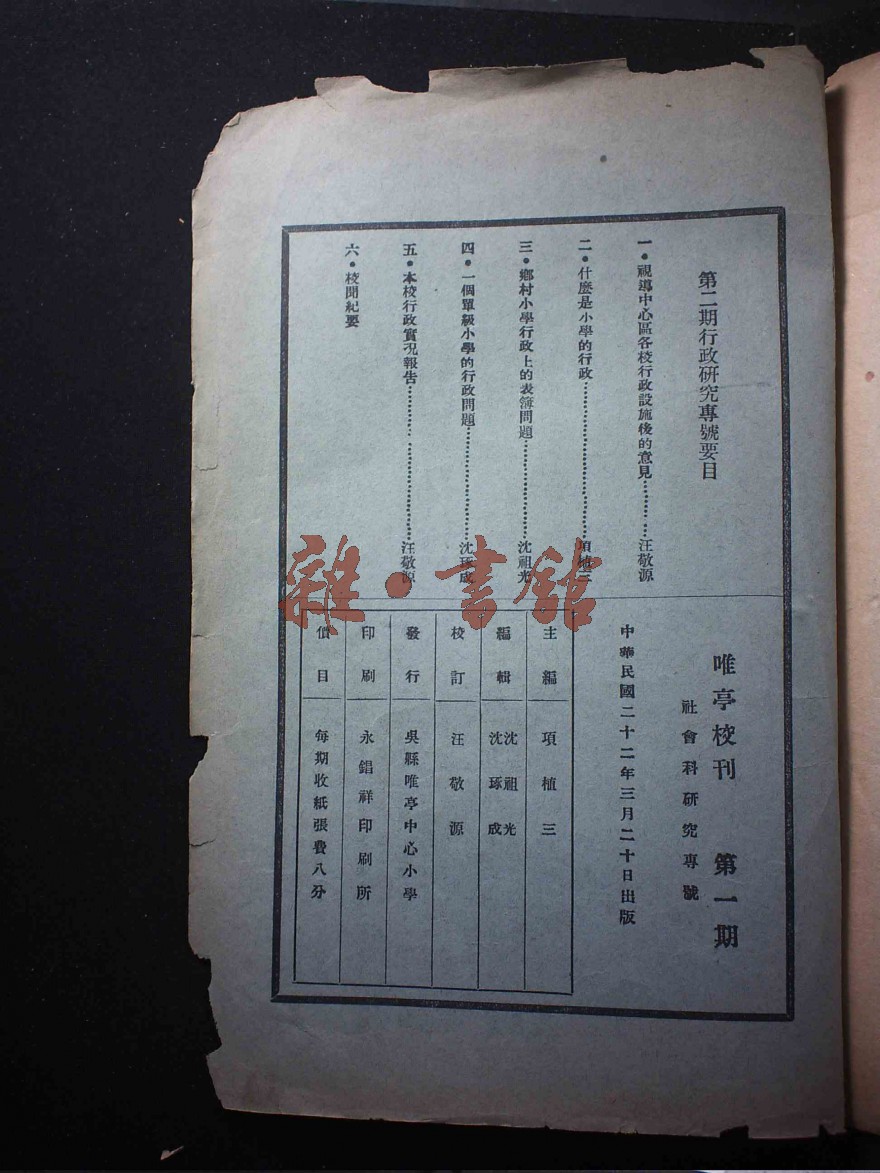 第二期行政研究專號要目
一•視導中心區各校行政設施後的意見………汪敬源
二•什麼是小學的行政………項植三
三•鄉村小學行政上的表簿問題………沈祖光
四•一個單級小學的行政問題………沈琢成
五•本校行政實況報告………汪敬源
六•校聞紀要
唯亭校刊 第一期
社會科研究專號
中華民國二十二年三月二十日出版
主編 項植三
編輯 沈祖光 沈琢成
校訂 汪敬源
發行 吳縣唯亭中心小學
印刷 永錩祥印刷所
價目 每期收紙張費八分
雜•書館